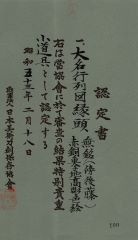 認定書
一、大名行列図縁頭
無銘（後藤）
赤銅魚子地高彫色絵
右は當協會に於て審査の結果特別貴重
小道具として認定する
昭和五十三年二月十八日
財團法人日本美術刀剣保存協會